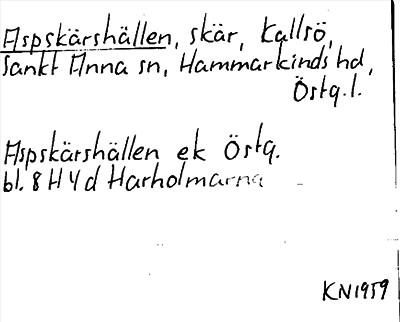 Aspskärshällen, skär, Kallsö,
Sankt Anna sn, Hammarkinds hd,
Östg. l.
Aspskärshällen ek Östg.
bl. 8 H 4 d Harholmarna
KN1959